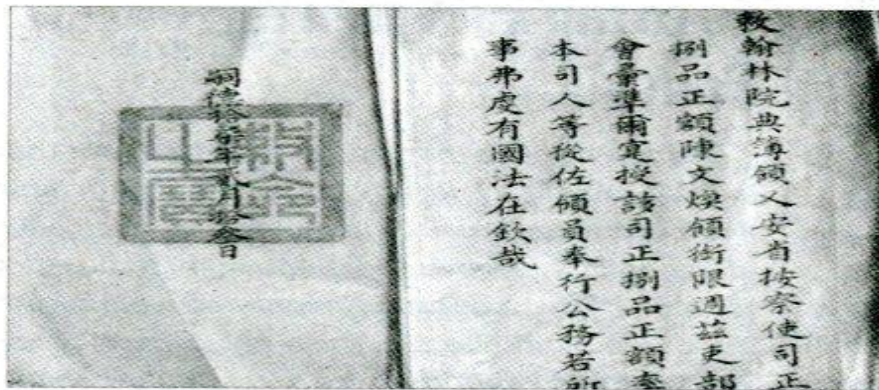 敕翰林院典簿領乂安省按察使司正
捌品正額陳文煥領銜限週茲吏部
會彙準爾寔授該司正捌品正額奉
本司人等從佐領員奉行公務若所
事弗虔有國法在欽哉
嗣德拾年貳月拾叁日
敕命之寶